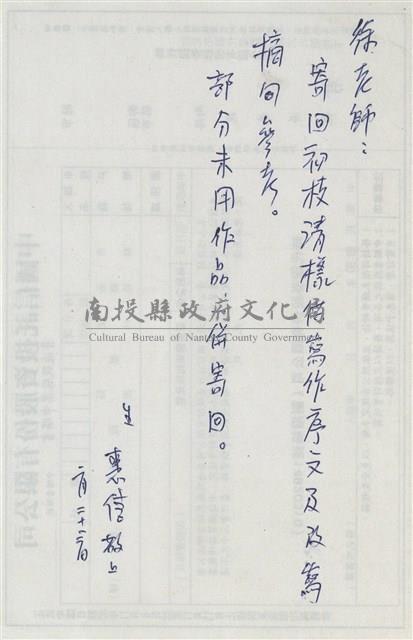 徐老師：
寄回初校清樣供寫作序文及改寫
摘回參考。
部分未用作品，併寄回。
生
惠信敬上
月二十日
南投縣政府文化局
Cultural Bureau of Nantou County Government